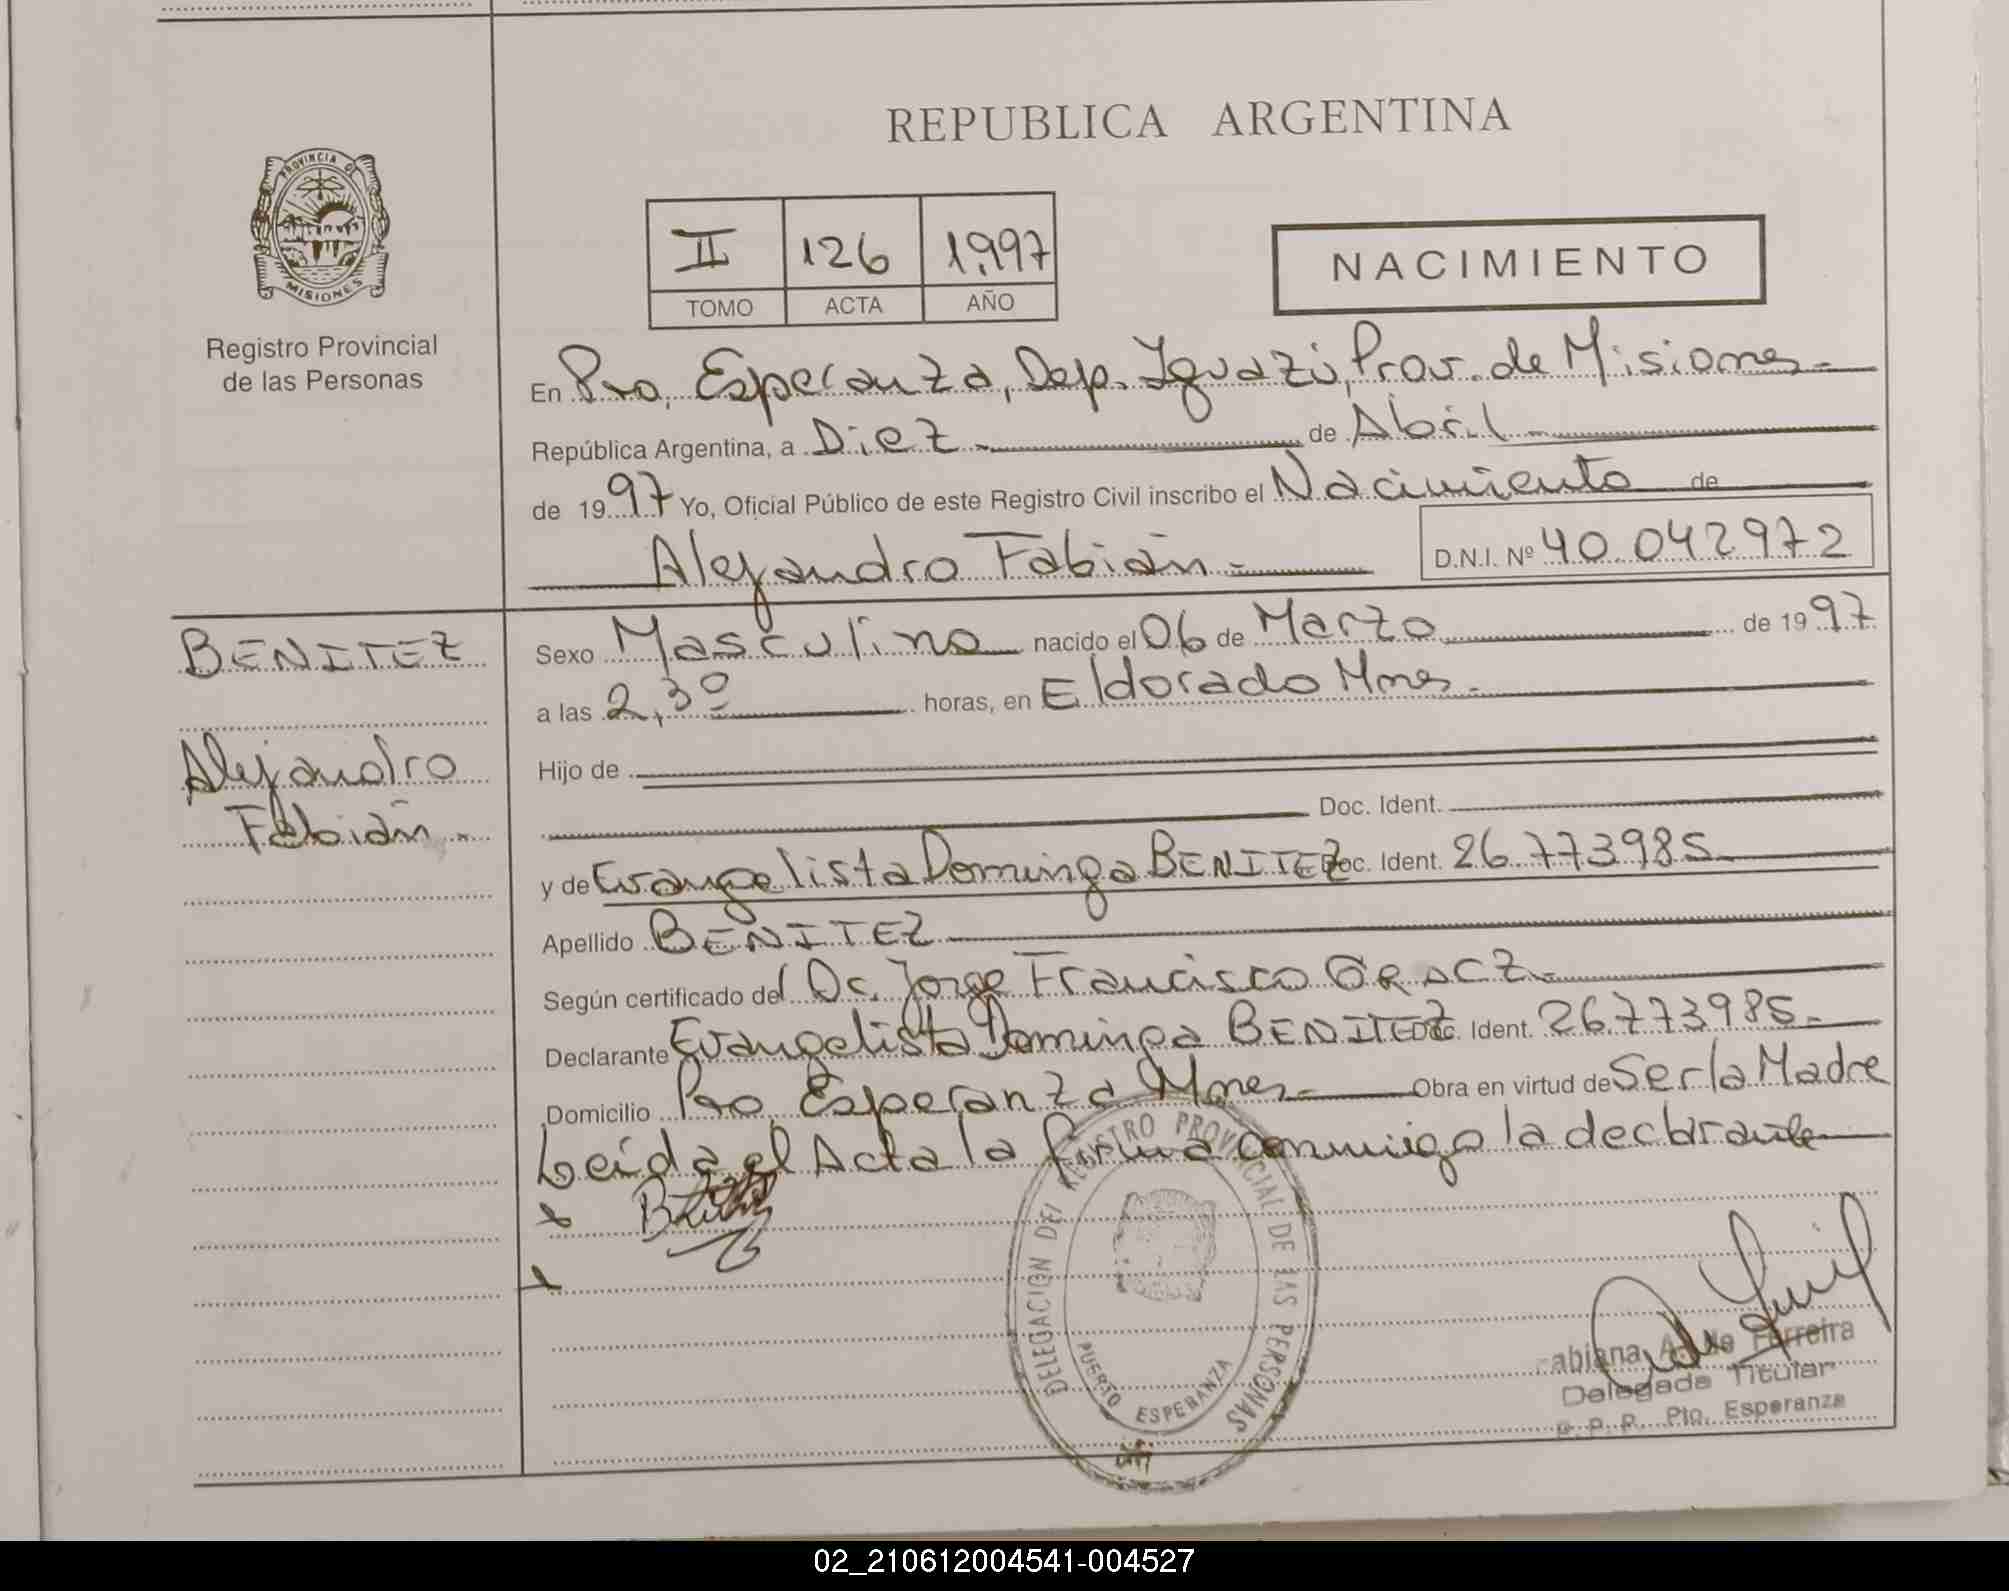 REPUBLICA ARGENTINA
PROVINCIA DE
MISIONES
Registro Provincial
de las Personas
II 126 1.997
TOMO ACTA AÑO
NACIMIENTO
En Pto. Esperanza, Dep. Iguazú, Prov. de Misiones.-
República Argentina, a Diez.- de Abril.-
de 1997 Yo, Oficial Público de este Registro Civil inscribo el Nacimiento de
Alejandro Fabián.- D.N.I. Nº 40.042972
BENITEZ
Alejandro
Fabián.-
Sexo Masculino nacido el 06 de Marzo de 1997
a las 2,30 horas, en Eldorado Mnes.-
Hijo de
Doc. Ident.
y de Evangelista Dominga BENITEZ Doc. Ident. 26.773985.-
Apellido BENITEZ
Según certificado del Dr. Jorge Francisco
Declarante Evangelista Dominga BENITEZ Doc. Ident. 26773985.-
Domicilio Pto Esperanza Mnes.- Obra en virtud de Ser la Madre
Leída el Acta la firma conmigo la declarante
DELEGACION DEL REGISTRO PROVINCIAL DE LAS PERSONAS
PUERTO ESPERANZA
Ferreira
Delegada Titular
R. P. P. Pto. Esperanza
02_210612004541-004527